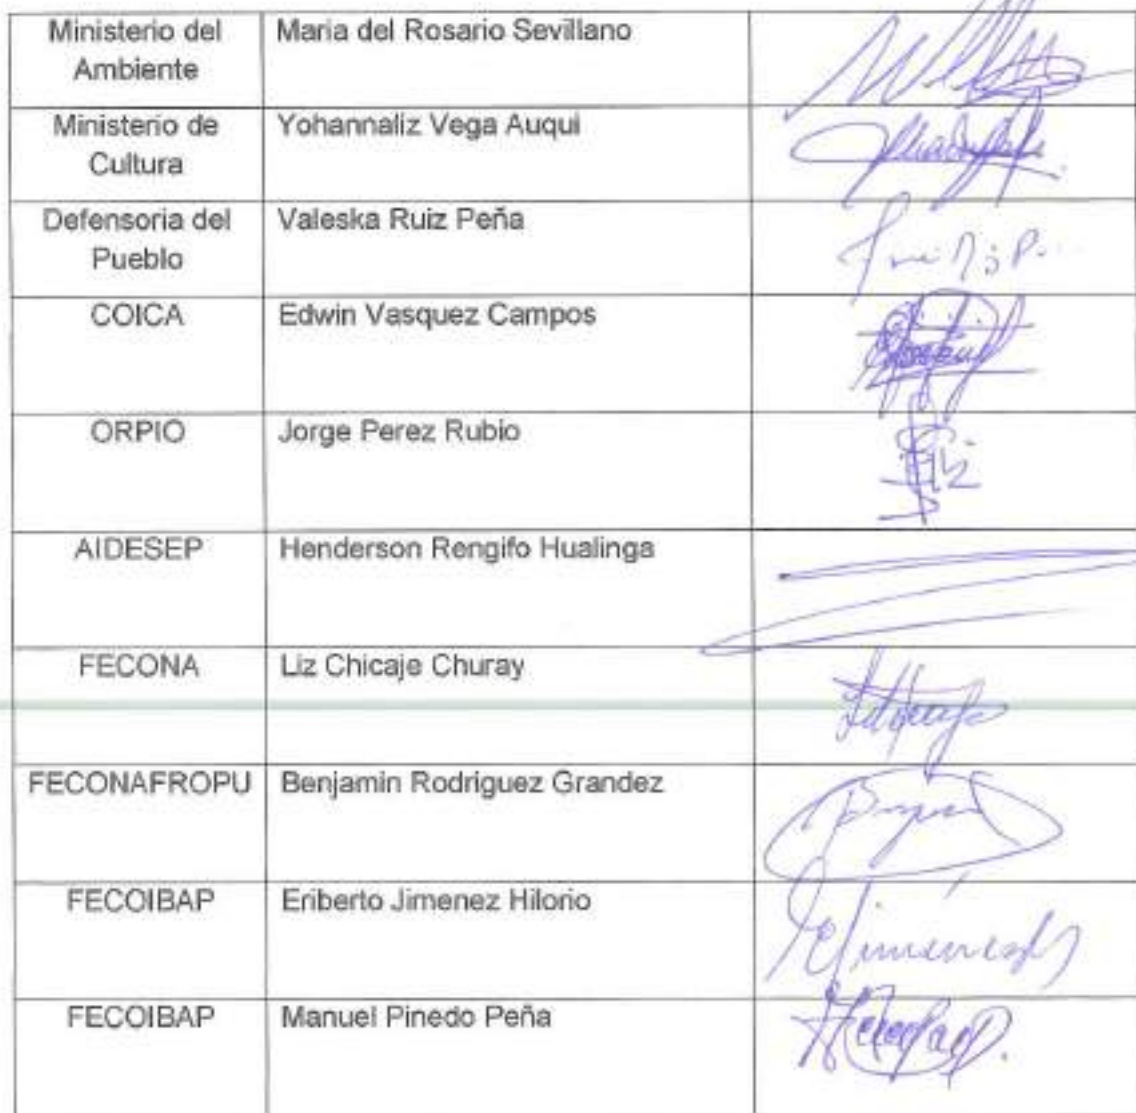 Ministerio del Ambiente
Maria del Rosario Sevillano
Ministerio de Cultura
Yohannaliz Vega Auqui
Defensoria del Pueblo
Valeska Ruiz Peña
COICA
Edwin Vasquez Campos
ORPIO
Jorge Perez Rubio
AIDESEP
Henderson Rengifo Hualinga
FECONA
Liz Chicaje Churay
FECONAFROPU
Benjamin Rodriguez Grandez
FECOIBAP
Eriberto Jimenez Hilorio
FECOIBAP
Manuel Pinedo Peña